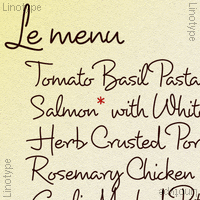 Linotype
Linotype
Le menu
Tomato Basil Pasta
Salmon* with Whit
Herb Crusted Por
Rosemary Chicken
Linotype
Linotype